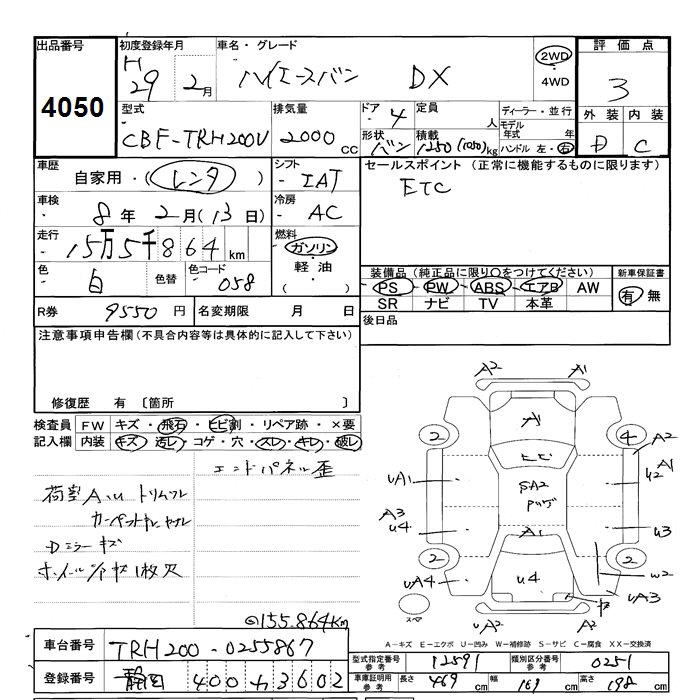 出品番号 初度登録年月 車名・グレード 2WD 評価点
4050 H29 2月 ハイエースバン DX 4WD 3
型式 排気量 ドア 4 定員 人 ディーラー・並行 外装 内装
CBF-TRH200V 2000cc 形状 バン 積載 1250(1050)kg モデル年式 年 ハンドル 左・右 D C
車歴 自家用・(レンタ) シフト IAT セールスポイント(正常に機能するものに限ります)
車検 8年2月(13日) 冷房 AC ETC
走行 15万5千864km 燃料 ガソリン
色 白 色替 色コード 058 軽油 装備品(純正品に限り○をつけてください) 新車保証書
( ) PS・PW・ABS・エアB AW 有 無
R券 9550円 名変期限 月 日 SR ナビ TV 本革
注意事項申告欄(不具合内容等は具体的に記入して下さい) 後日品
修復歴 有 〔箇所 〕
検査員 FW キズ・飛石・ヒビ割・リペア跡・×要
記入欄 内装 キズ・汚レ・コゲ・穴・スレ・キレ・破レ
エンドパネル歪
荷室A.u トリムスレ
Dミラーキズ
155.864km
A2 A1
A1
2 4 A2
ヒビ
uA1 SA2 u2 A1
A3 u4 A1 u3
2 2
uA4 u4 w2 uA3
uA2 A2
A-キズ E-エクボ U-凹み W-補修跡 S-サビ C-腐食 XX-交換済
車台番号 TRH200-0255867 型式指定番号 参考 12591 類別区分番号 参考 0251
登録番号 静岡 400 わ 3602 車庫証明用 参考 長さ 469cm 幅 169cm 高さ 198cm